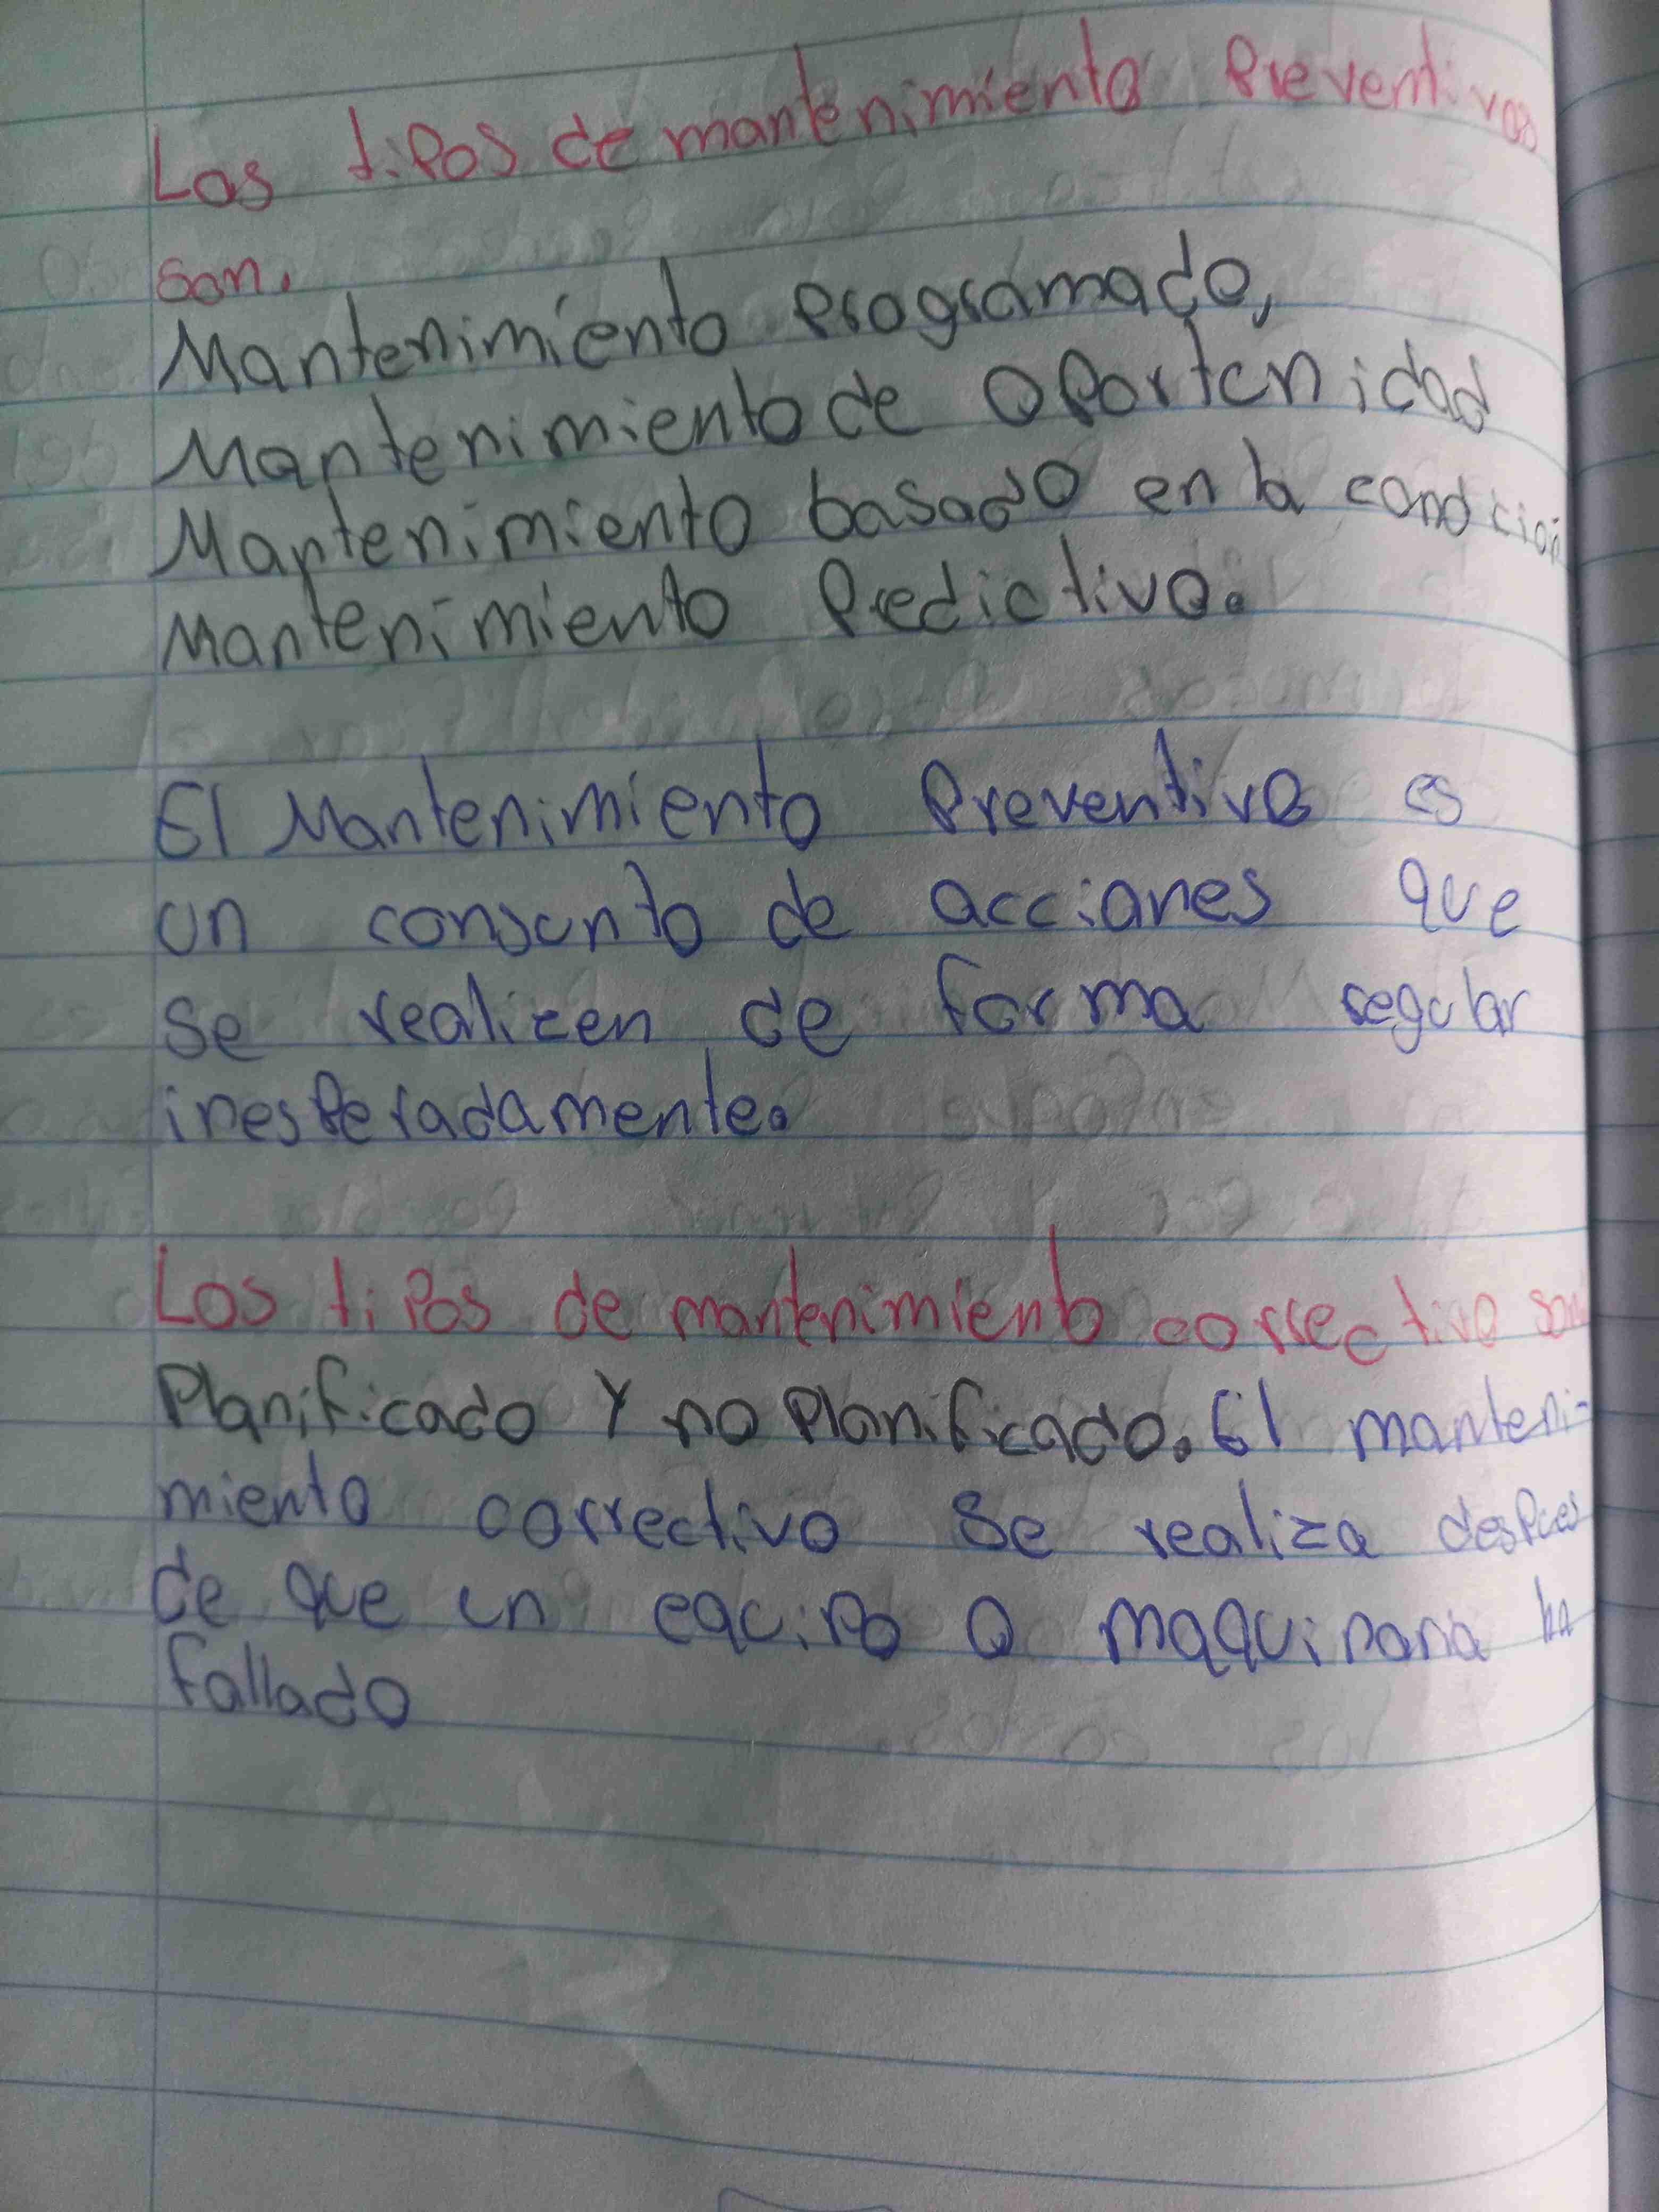 Los tipos de mantenimiento Preventivos
son.
Mantenimiento Programado,
Mantenimiento de Oportunidad
Mantenimiento basado en la condicion
Mantenimiento Predictivo.
El Mantenimiento Preventivo es
un consunto de acciones que
se realicen de forma regular
inesperadamente.
Los tipos de mantenimiento correctivo son
Planificado Y no Planificado. El manteni-
miento correctivo se realiza despues
de que un equipo o maquinaria ha
fallado